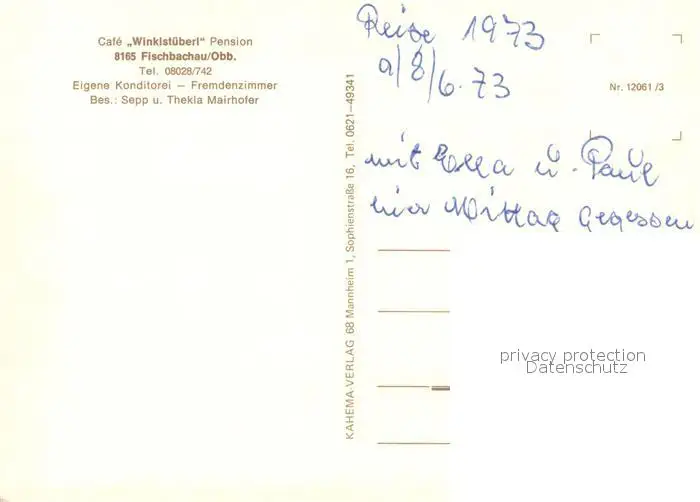 Café „Winklstüberl" Pension
8165 Fischbachau/Obb.
Tel. 08028/742
Eigene Konditorei – Fremdenzimmer
Bes.: Sepp u. Thekla Mairhofer
KAHEMA-VERLAG 68 Mannheim 1, Sophienstraße 16, Tel. 0621—49341
Reise 1973
8/6.73
Nr. 12061/3
mit u. Paul
hier Mittag gegessen
privacy protection
Datenschutz